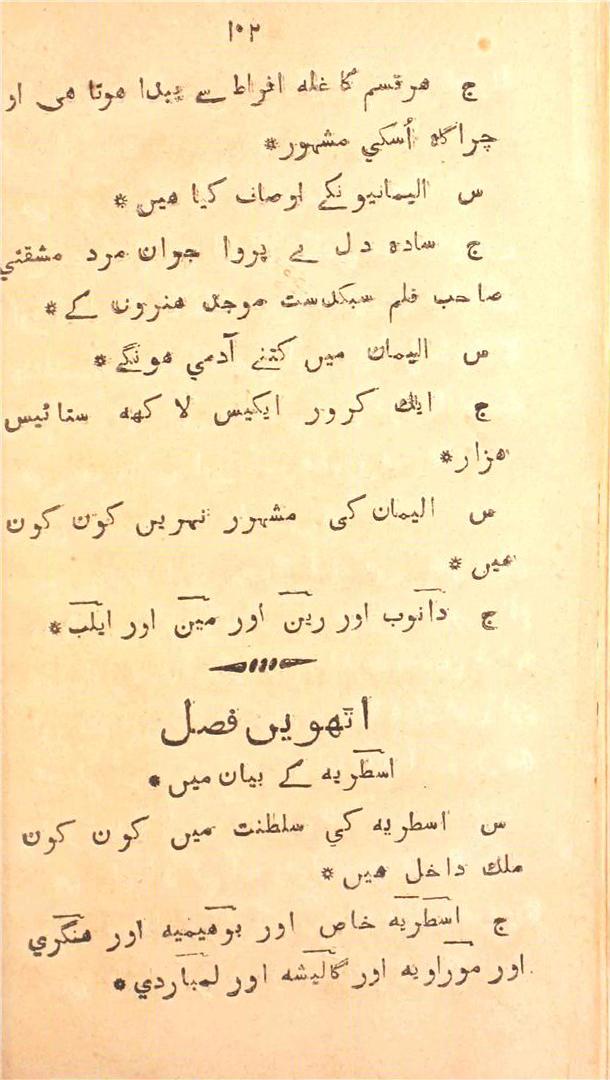 ۱۰۲
ج هر قسم کا غله افراط سے پیدا هوتا هی او
چراگاه اُسکي مشهور*
س الیمانیونکے اوصاف کیا هیں*
ج ساده دل بے پروا جوان مرد مشقتي
صاحب قلم سبکدست موجد هنروں کے*
س الیمان میں کتنے آدمي هونگے*
ج ایك کرور ایکیس لاکهه ستائیس
هزار*
س الیمان کی مشهور نهریں کون کون
هیں*
ج دانوب اور رین اور مین اور ایلب*
اتهویں فصل
اسطریه کے بیان میں*
س اسطریه کي سلطنت میں کون کون
ملك داخل هیں*
ج اسطریه خاص اور بوهیمیه اور هنگري
اور موراویه اور گالیشه اور لمباردي*